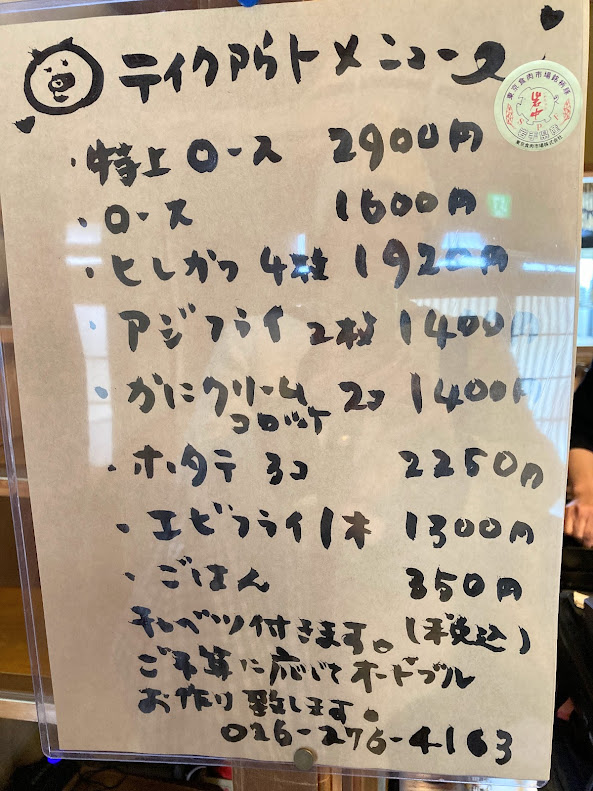 ティクアウトメニュー
・特上ロース 2900円
・ロース 1600円
・ヒレかつ 4枚 1920円
・アジフライ 2枚 1400円
・かにクリームコロッケ 2コ 1400円
・ホタテ 3コ 2250円
・エビフライ 1本 1300円
・ごはん 350円
キャベツ付きます。(税込)
ご予算に応じてオードブル
お作り致します。
026-276-4163
東京食肉市場銘柄豚
東京食肉市場株式会社